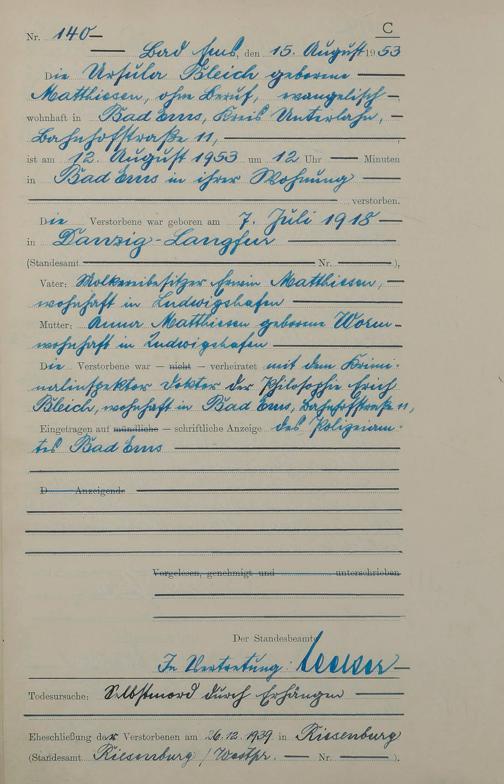 C
Nr. 140
Bad Ems, den 15. August 1953
Die Ursula Bleich geborene
Matthiesen, ohne Beruf, evangelisch
wohnhaft in Bad Ems, Kreis Unterlahn,
Bahnhofstraße 11,
ist am 12. August 1953 um 12 Uhr — Minuten
in Bad Ems in ihrer Wohnung
verstorben.
Die Verstorbene war geboren am 7. Juli 1918
in Danzig-Langfuhr
(Standesamt — Nr. — ),
Vater: Molkereibesitzer Erwin Matthiesen,
wohnhaft in Ludwigshafen
Mutter: Anna Matthiesen geborene Worm
wohnhaft in Ludwigshafen
Die Verstorbene war — nicht — verheiratet mit dem Krimi-
nalinspektor Doktor der Philosophie Erich
Bleich, wohnhaft in Bad Ems, Bahnhofstraße 11,
Eingetragen auf mündliche — schriftliche Anzeige des Polizeiam-
tes Bad Ems
D Anzeigende
Vorgelesen, genehmigt und unterschrieben
Der Standesbeamte
In Vertretung:
Todesursache: Selbstmord durch Erhängen
Eheschließung der Verstorbenen am 26.12.1939 in Riesenburg
(Standesamt Riesenburg / Westpr. — Nr. — ).